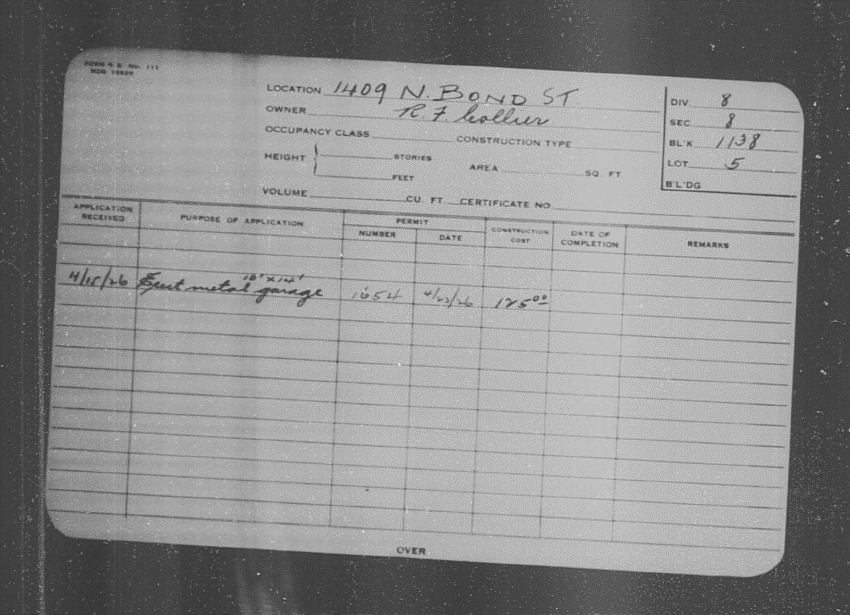 FORM
LOCATION 1409 N. BOND ST.
OWNER R. F. Collier
OCCUPANCY CLASS CONSTRUCTION TYPE
HEIGHT STORIES AREA SQ. FT
FEET
VOLUME CU. FT. CERTIFICATE NO
DIV. 8
SEC 8
BL'K 1138
LOT 5
B'L'DG
APPLICATION RECEIVED PURPOSE OF APPLICATION PERMIT NUMBER DATE CONSTRUCTION COST DATE OF COMPLETION REMARKS
10' x 14'
4/15/26 Erect metal garage 1654 4/22/26 125 00
OVER